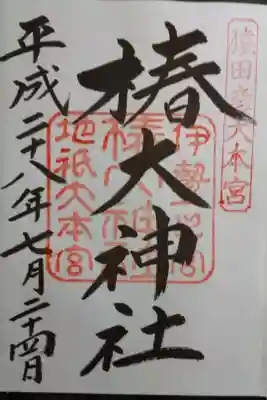 猿田彦大本宮
椿大神社
伊勢一之宮
椿大神社
地祇大本宮
平成二十八年七月二十四日